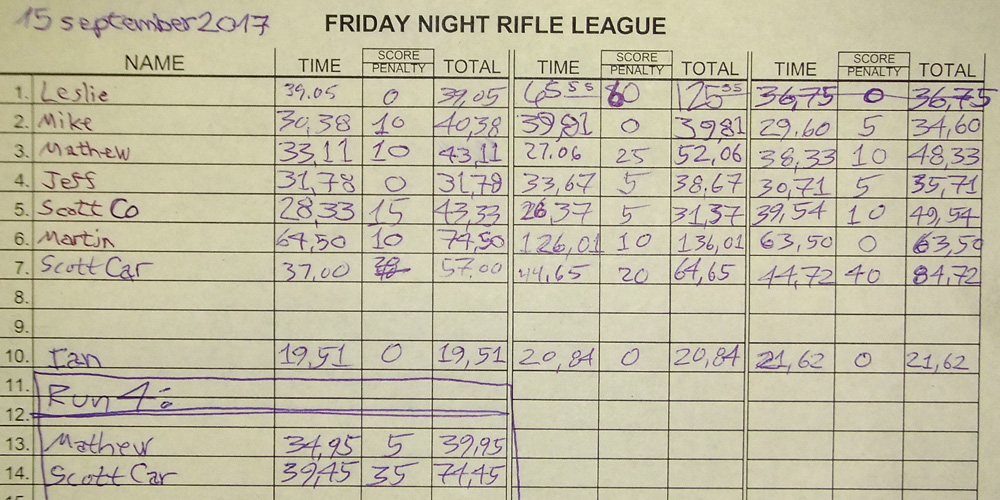 15 september 2017 FRIDAY NIGHT RIFLE LEAGUE
NAME TIME SCORE PENALTY TOTAL TIME SCORE PENALTY TOTAL TIME SCORE PENALTY TOTAL
1. Leslie 39.05 0 39,05 65 55 60 125 55 36,75 0 36,75
2. Mike 30,38 10 40,38 39,81 0 39,81 29.60 5 34,60
3. Mathew 33,11 10 43,11 27.06 25 52,06 38,33 10 48,33
4. Jeff 31,78 0 31,78 33,67 5 38,67 30,71 5 35,71
5. Scott Co 28,33 15 43,33 26,37 5 31,37 39,54 10 49,54
6. Martin 64,50 10 74,50 126,01 10 136,01 63,50 0 63,50
7. Scott Car 37,00 57.00 44,65 20 64,65 44,72 40 84,72
8.
9.
10. Ian 19,51 0 19,51 20,84 0 20,84 21,62 0 21,62
11. Run 4:
12.
13. Mathew 34,95 5 39,95
14. Scott Car 39,45 35 74,45